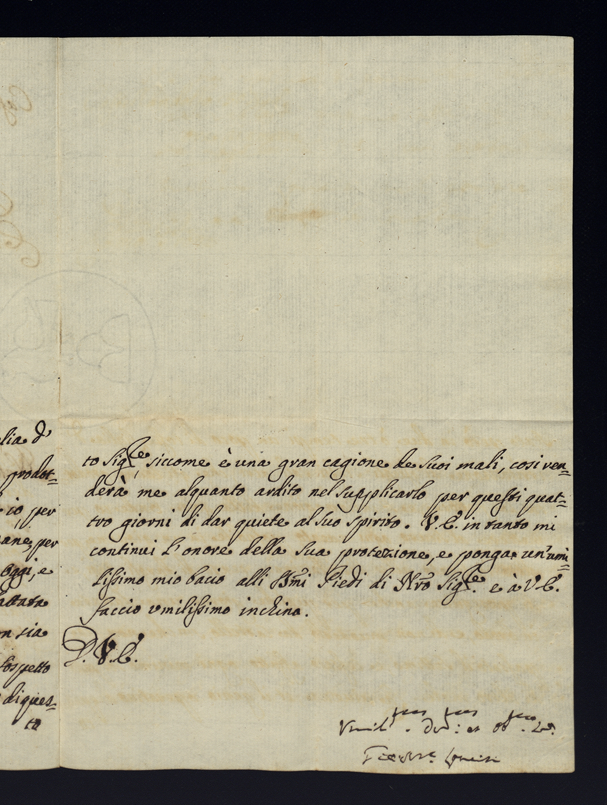 lia d
prodot=
io per
ane, per
oggi, e
attata
on sia
sospetto
di ques=
to
to Sig.re, siccome è una gran cagione de suoi mali, così ren=
derà me alquanto ardito nel supplicarlo per questi quat=
tro giorni di dar quiete al suo spirito. V.E. in tanto mi
continui l'onore della sua protezione, e ponga un'umi=
lissimo mio bacio alli SS.mi Piedi di Nro Sig.re e à V.E.
faccio umilissimo inchino.
D. V.E.